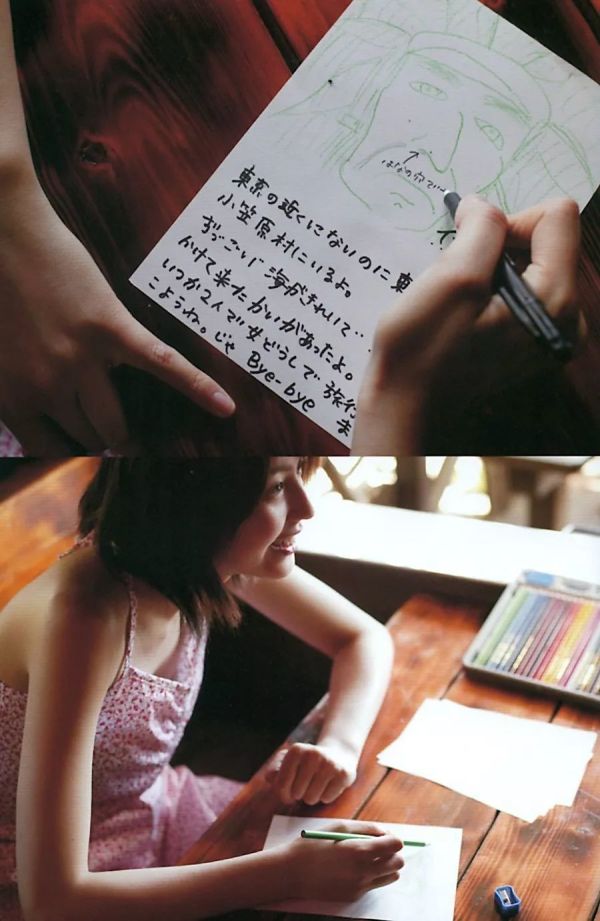 はなの穴で
東京の近くにないのに東
小笠原村にいるよ。
すっごい海がきれいで…
かけて来たかいがあったよ。
いつか2人で女どうしで旅行
こようね。じゃ Bye-bye ま